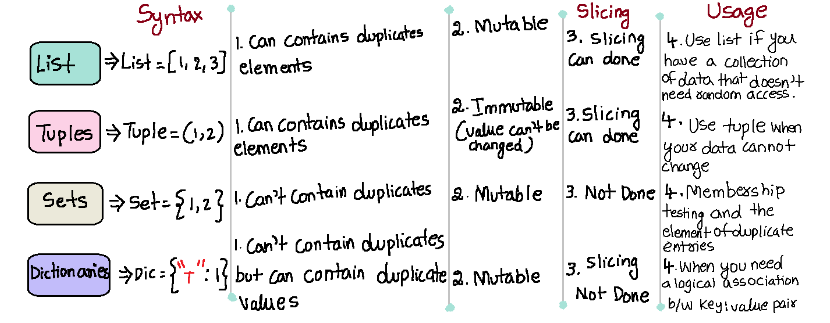 Syntax
Slicing
Usage
List
⇒ List = [1, 2, 3]
1. Can contains duplicates
elements
2. Mutable
3. Slicing
can done
4. Use list if you
have a collection
of data that doesn't
need random access.
Tuples
⇒ Tuple = (1,2)
1. Can contains duplicates
elements
2. Immutable
(value can't be
changed)
3. Slicing
can done
4. Use tuple when
your data cannot
change
Sets
⇒ Set = {1,2}
1. Can't contain duplicates
2. Mutable
3. Not Done
4. Membership
testing and the
element of duplicate
entries
Dictionaries
⇒ Dic = {"T" : 1}
1. Can't contain duplicates
but can contain duplicate
values
2. Mutable
3. Slicing
Not Done
4. When you need
a logical association
b/w key:value pair